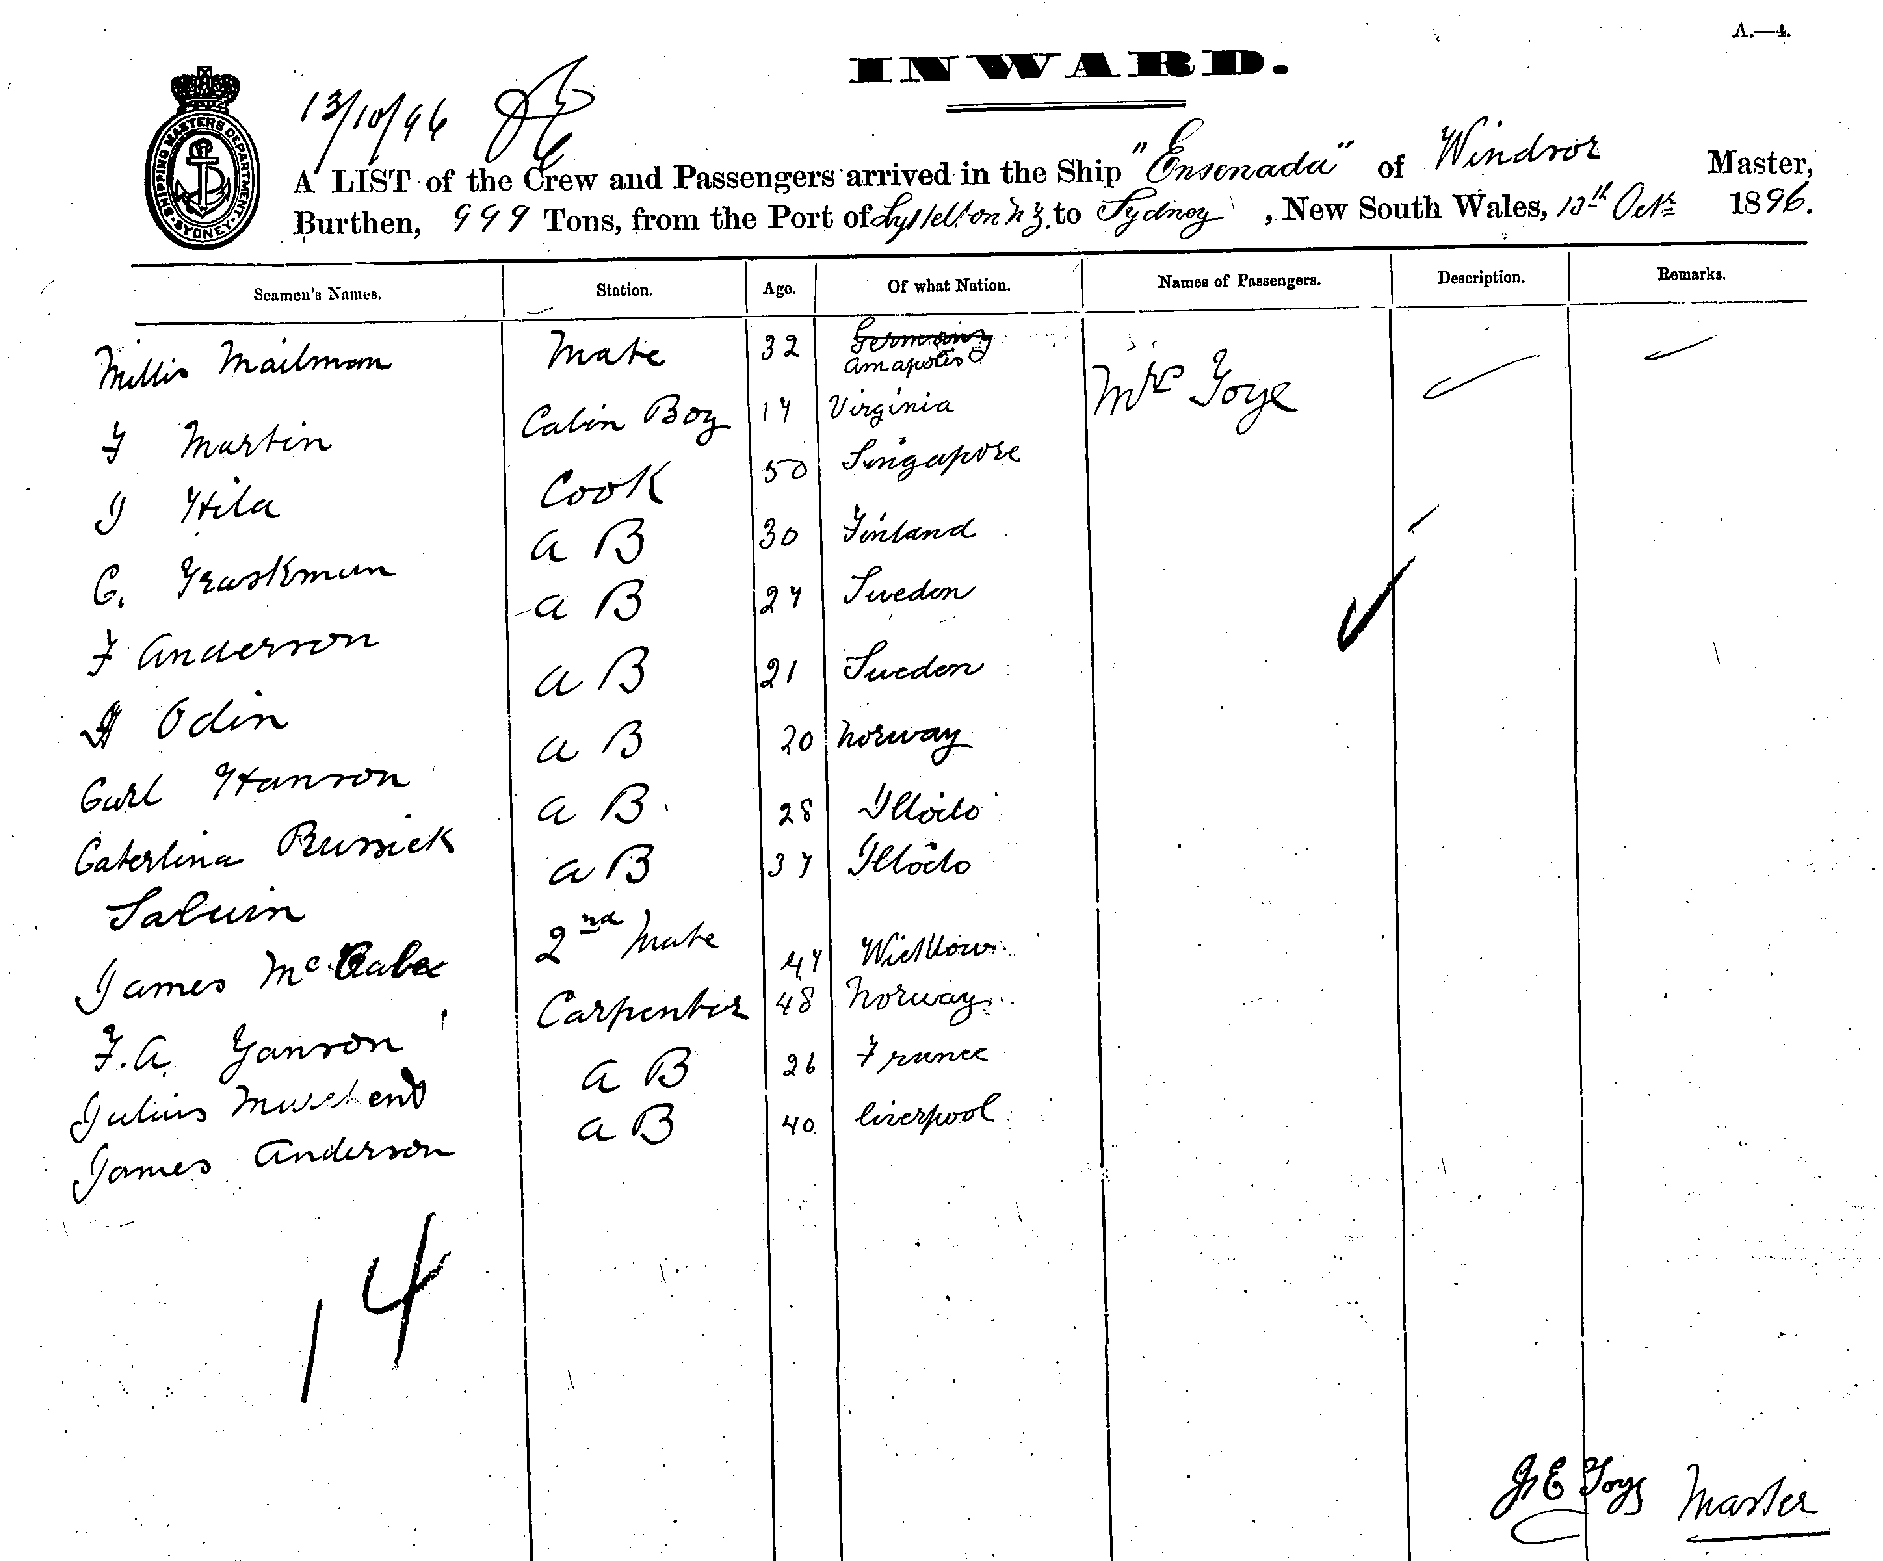 A.—4.
INWARD.
SHIPPING MASTERS DEPARTMENT SYDNEY
13/10/96
A LIST of the Crew and Passengers arrived in the Ship "Ensenada" of Windsor Master,
Burthen, 999 Tons, from the Port of Lyttelton N Z. to Sydney, New South Wales, 13th Oct. 1896.
Seamen's Names. Station. Age. Of what Nation. Names of Passengers. Description. Remarks.
Millis Mailman Mate 32 Germany Anapolis Mrs Toye
F Martin Cabin Boy 17 Virginia
J Hila Cook 50 Singapore
C. Fraskman A B 30 Finland
F Anderson A B 27 Sweden
Odin A B 21 Sweden
Carl Hanson A B 20 Norway
Caterlina Russick A B. 28 Iloilo
Saluin A B 37 Iloilo
James McCabe 2nd Mate 47 Wicklow
F.A. Yanson Carpenter 48 Norway
Julius A B 26 France
James Anderson A B 40 liverpool
14
J E Toye Master